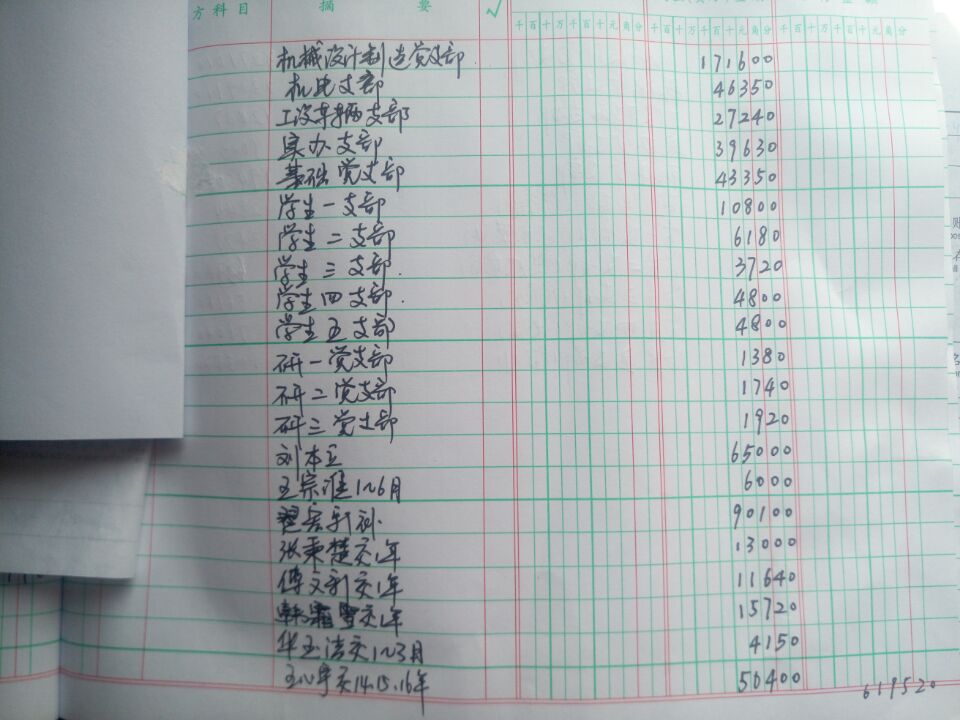 方科目 摘 要 √
千百十万千百十元角分 千百十万千百十元角分 千百十万千百十元角分
机械设计制造党支部 171600
机电支部 46350
工设车辆支部 27240
实办支部 39630
基础党支部 43350
学生一支部 10800
学生二支部 6180
学生三支部 3720
学生四支部 4800
学生五支部 4800
研一党支部 1380
研二党支部 1740
研三党支部 1920
刘本立 65000
王宗淮1~6月 6000
新补 90100
张秉楚交1年 13000
傅文利交1年 11640
韩霜雪交1年 15720
华玉洁交1~3月 4150
交14.15.16年 50400 619520